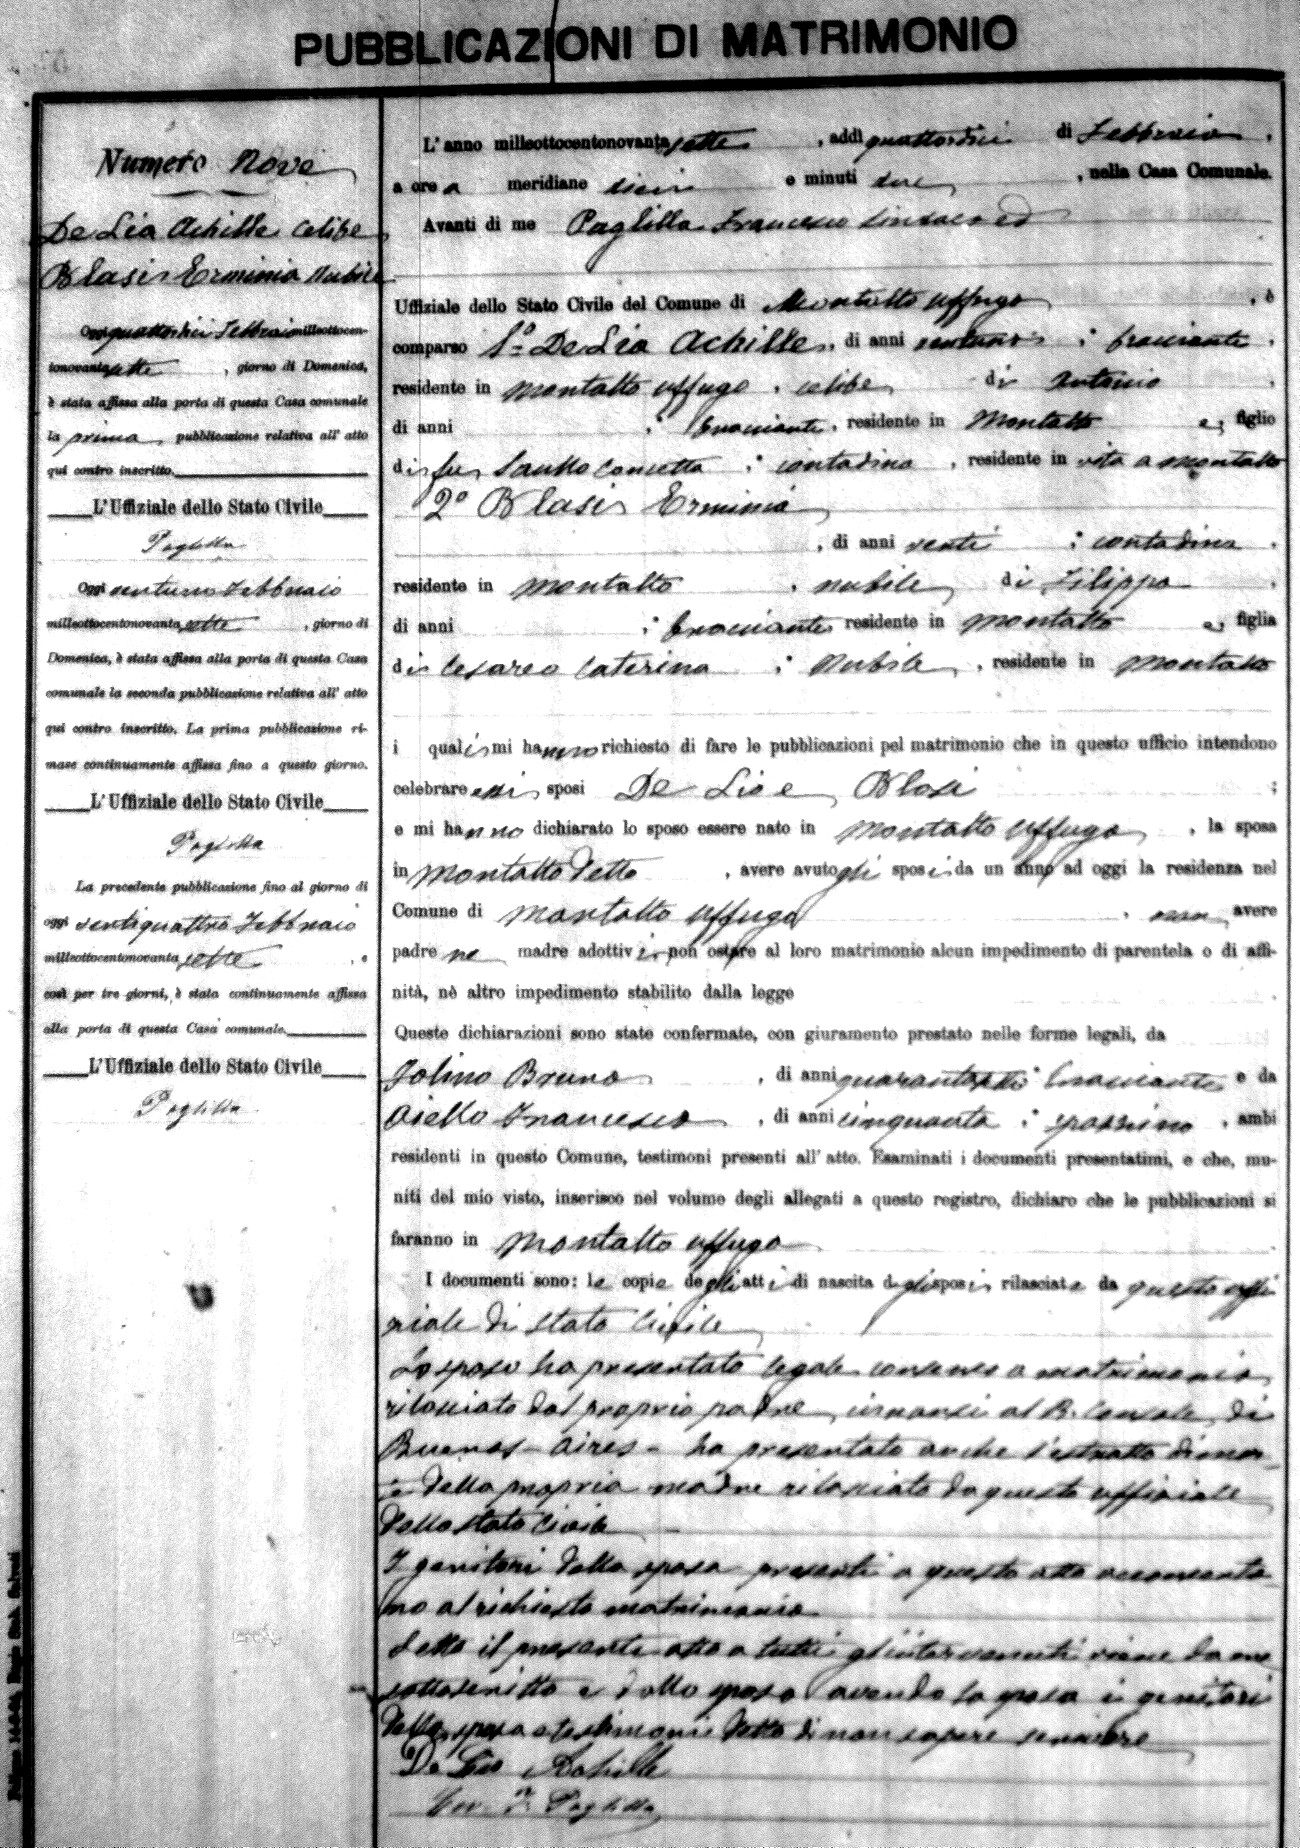 PUBBLICAZIONI DI MATRIMONIO
Numero Nove
De Lio Achille celibe
Blasi Erminia nubile
Oggi quattordici Febbraio milleottocen-
tonovantasette, giorno di Domenica,
è stata affissa alla porta di questa Casa comunale
la prima pubblicazione relativa all' atto
qui contro inscritto.
L'Uffiziale dello Stato Civile
Paglilla
Oggi ventuno Febbraio
milleottocentonovantasette, giorno di
Domenica, è stata affissa alla porta di questa Casa
comunale la seconda pubblicazione relativa all' atto
qui contro inscritto. La prima pubblicazione ri-
mase continuamente affissa fino a questo giorno.
L'Uffiziale dello Stato Civile
Paglilla
La precedente pubblicazione fino al giorno di
oggi ventiquattro Febbraio
milleottocentonovantasette, e
così per tre giorni, è stata continuamente affissa
alla porta di questa Casa comunale.
L'Uffiziale dello Stato Civile
Paglilla
L' anno milleottocentonovantasette, addì quattordici di Febbraio,
a ore a meridiane dieci e minuti due, nella Casa Comunale.
Avanti di me Paglilla Francesco Sindaco ed
Uffiziale dello Stato Civile del Comune di Montalto Uffugo, è
comparso 1° De Lio Achille, di anni ventuno, bracciante,
residente in Montalto Uffugo, celibe di Antonio
di anni, bracciante, residente in Montalto e figlio
di fu Concetta, contadina, residente in vita a Montalto
2° Blasi Erminia
, di anni venti, contadina,
residente in Montalto, nubile, di Filippo
di anni, bracciante residente in Montalto e figlia
di Cesareo Caterina, nubile, residente in Montalto
i quali mi hanno richiesto di fare le pubblicazioni pel matrimonio che in questo ufficio intendono
celebrare essi sposi De Lio e Blasi;
e mi hanno dichiarato lo sposo essere nato in Montalto Uffugo, la sposa
in Montalto detto, avere avuto gli sposi da un anno ad oggi la residenza nel
Comune di Montalto Uffugo, non avere
padre ne madre adottivi, non ostare al loro matrimonio alcun impedimento di parentela o di affi-
nità, nè altro impedimento stabilito dalla legge
Queste dichiarazioni sono state confermate, con giuramento prestato nelle forme legali, da
Iolino Bruno, di anni bracciante e da
Aiello Francesco, di anni cinquanta, spazzino, ambi
residenti in questo Comune, testimoni presenti all' atto. Esaminati i documenti presentatimi, e che, mu-
niti del mio visto, inserisco nel volume degli allegati a questo registro, dichiaro che le pubblicazioni si
faranno in Montalto Uffugo
I documenti sono: le copie degli atti di nascita degli sposi rilasciate da questo uffi
ziale di stato civile
Lo sposo ha presentato legale consenso a matrimonio
rilasciato dal proprio padre innanzi al R. Console di
Buenos-Aires - ha presentato anche l'estratto di mor
te della propria madre rilasciato da questo uffiziale
dello stato civile
I genitori della sposa presenti a questo atto acconsento
no al richiesto matrimonio
Letto il presente atto a tutti gl'intervenuti viene da me
sottoscritto e dallo sposo avendo la sposa i genitori
della sposa e testimoni detto di non sapere scrivere
De Lio Achille
Paglilla